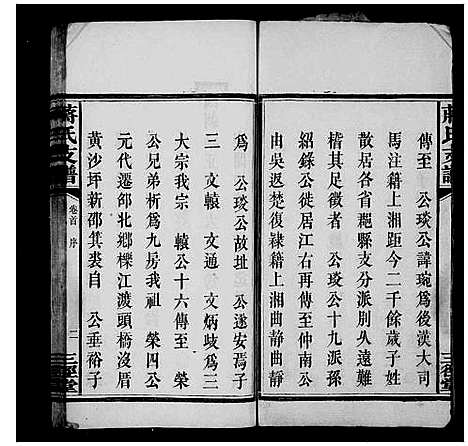 傳至　公琰公諱琬爲後漢大司
馬注籍上湘距今二千餘歳子姓
散居各省郡縣支分派別久遠難
稽其足徵者　公琰公十九派孫
紹錄公徙居江右再傳至仲南公
由吳返楚復隷籍上湘曲靜曲靜
爲　公琰公故址　公遂安焉子
三　文轅　文通　文炳歧爲三
大宗我宗　轅公十六傳至　榮
公兄弟析爲九房我祖　榮四公
元代遷邵北鄉櫟江渡頭橋沒厝
黃沙坪新邵箕裘自　公垂裕子
蔣氏支譜
卷首　序
二
三徑堂